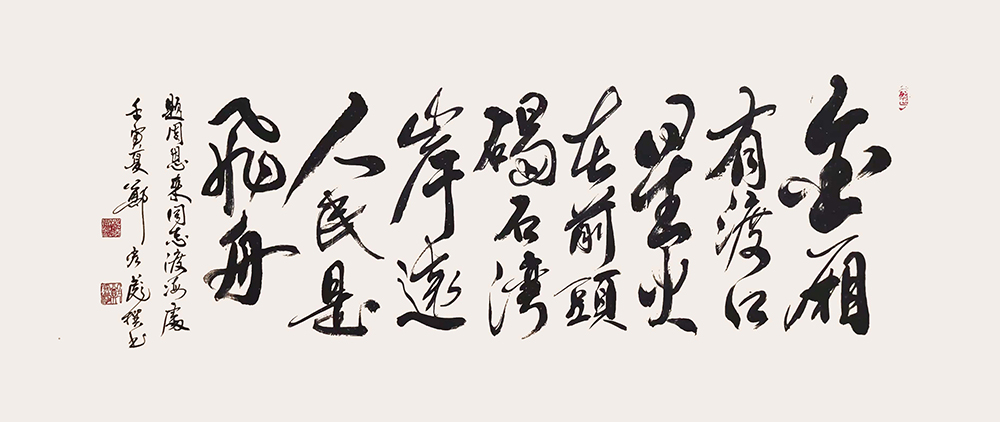 金厢
有渡口
星火
在前頭
碣石湾
岸遠
人民是
飛舟
題周恩来同志渡海處
壬寅夏鄭彪撰書